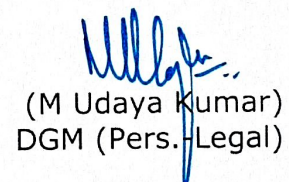 (M Udaya Kumar)
DGM (Pers.-Legal)